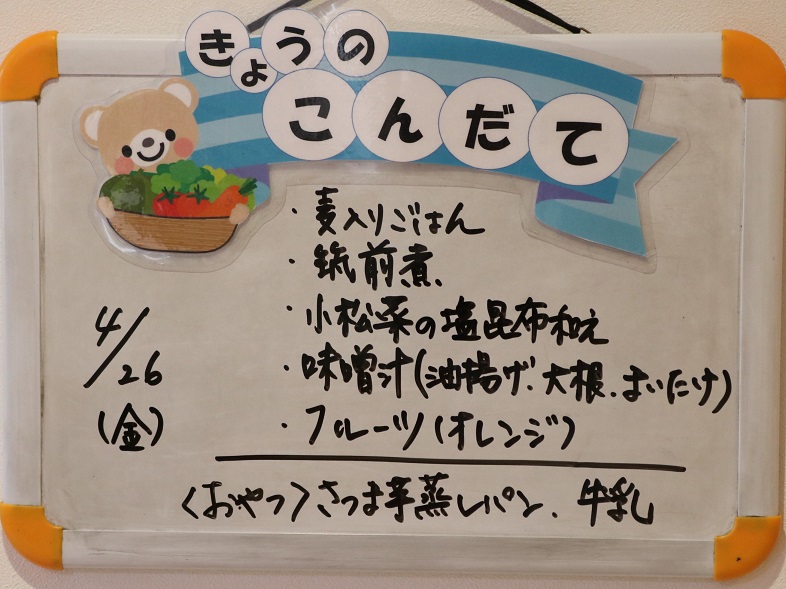 きょうの
こんだて
・麦入りごはん
・筑前煮
・小松菜の塩昆布和え
4/26
・味噌汁(油揚げ、大根、まいたけ)
(金)
・フルーツ(オレンジ)
〈おやつ〉さつま芋蒸しパン、牛乳